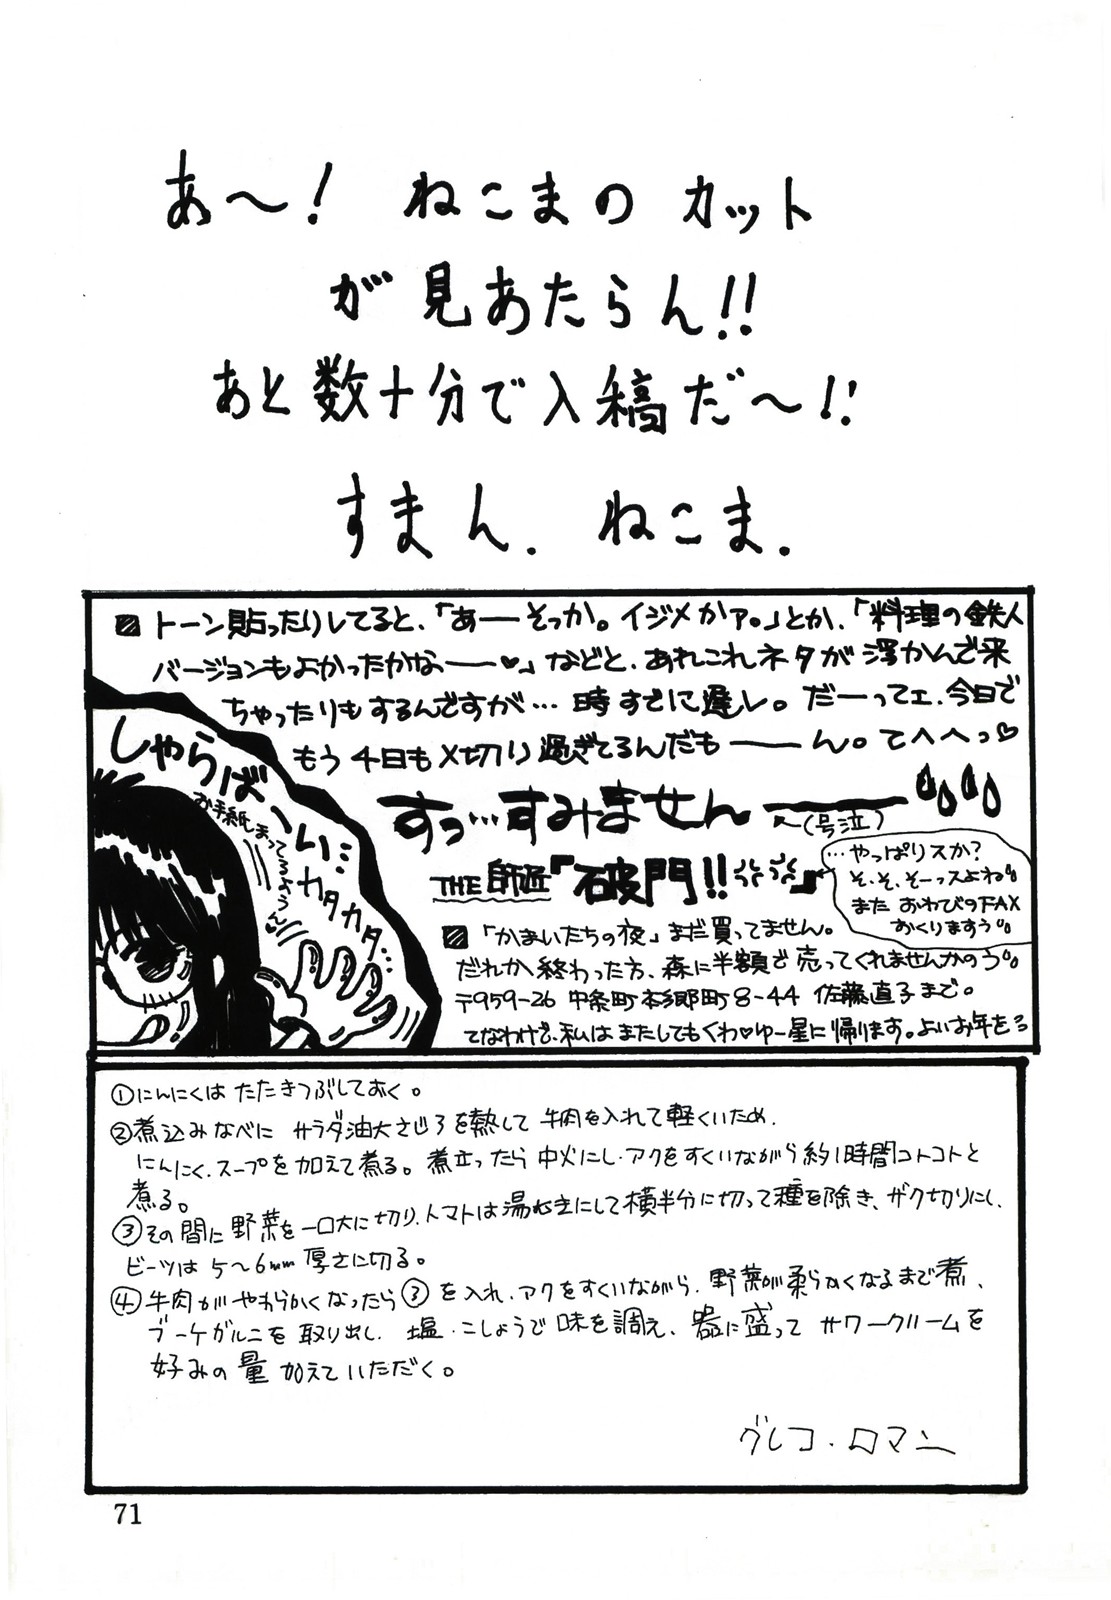 あ〜! ねこまの カット
が見あたらん!!
あと数十分で入稿だ〜!!
すまん. ねこま.
トーン貼ったりしてると、「あーそっか。イジメかァ。」とか、「料理の鉄人
バージョンもよかったかなー♡」などと、あれこれネタが浮かんで来
ちゃったりもするんですが… 時すでに遅し。だーってェ、今日で
もう4日も〆切り過ぎてるんだもーん。てへへっ♡
すっ…すみませんーー
(号泣)
THE 師匠『破門!!』
…やっぱりスか?
そ、そ、そーっスよね
また おわびのFAX
おくりますぅ
「かまいたちの夜」まだ買ってません。
だれか終わった方、森に半額で売ってくれませんかのう
〒959-26 中条町本郷町8-44 佐藤直子まで。
てなわけで、私は またしてもくわ♡ゆー星に帰ります。よいお年を
しゃらばーい…
お手紙まってるよぅん♡
カタカタ…
①にんにくは たたきつぶしておく。
②煮込みなべに サラダ油大さじ3を熱して 牛肉を入れて軽くいため.
にんにく.スープを加えて煮る。煮立ったら中火にし.アクをすくいながら約1時間コトコトと
煮る。
③その間に野菜を一口大に切り.トマトは湯むきにして横半分に切って種を除き、ザク切りにし、
ビーツは5〜6mm厚さに切る。
④牛肉がやわらかくなったら③を入れ.アクをすくいながら.野菜が柔らかくなるまで煮、
ブーケガルニを取り出し 塩.こしょうで味を調え、器に盛って サワークリームを
好みの量 加えていただく。
グレコ.ロマン
71